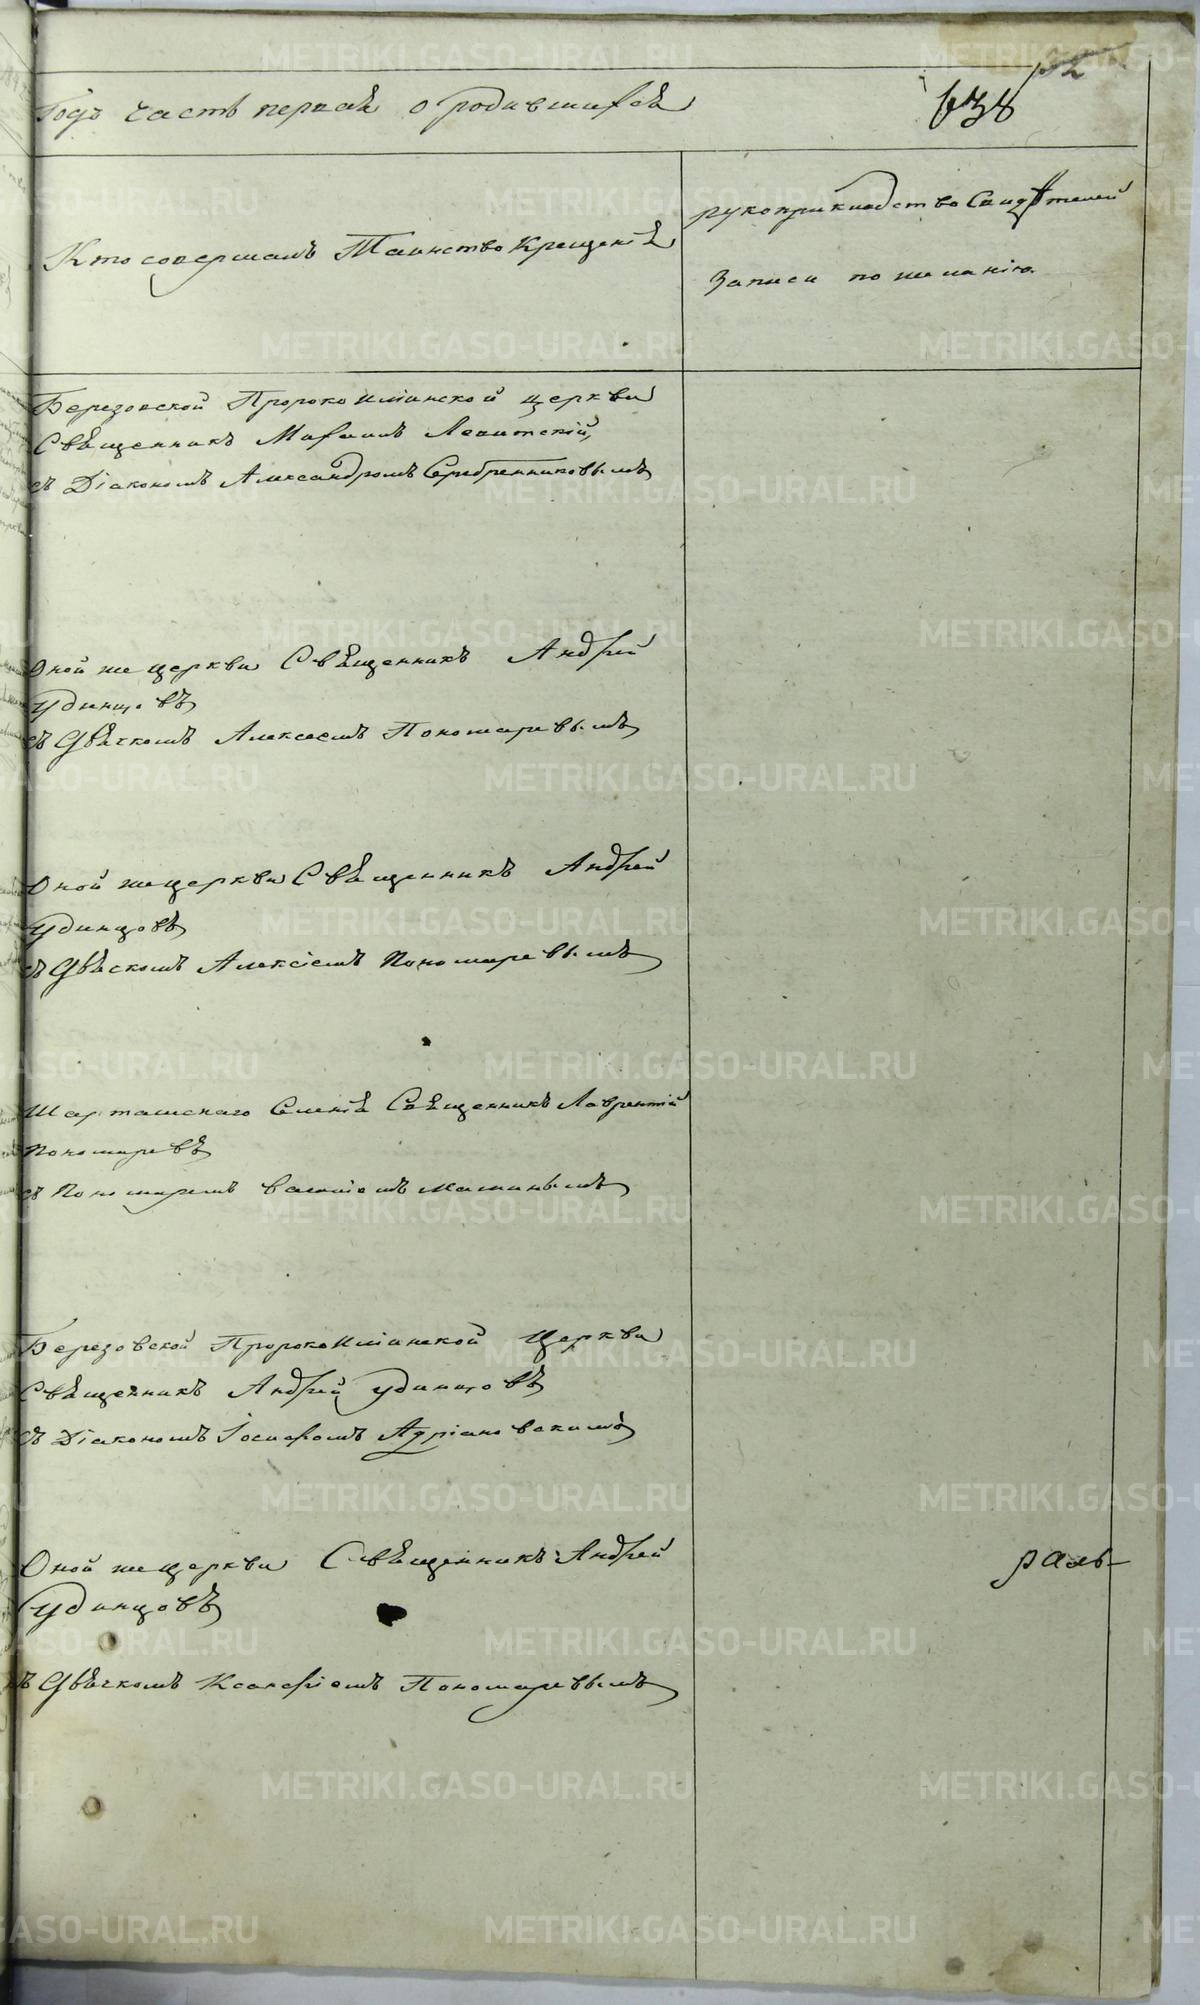 Годъ часть первая о родившихся
638
Кто совершалъ Таинство Крещенія
рукоприкладство Свидѣтелей
Записи по желанію.
Березовской Пророко Илiинской церкви
Священникъ Мафаилъ Левитскій,
съ Діакономъ Александромъ Серебренниковымъ
Оной же церкви Священникъ Андрей
Удинцовъ
съ Дьячкомъ Алексеемъ Пономаревымъ
Оной же церкви Священникъ Андрей
Удинцовъ
съ Дьяскомъ Алексіемъ Пономаревымъ
Шарташскаго Селенія Священникъ Лаврентій
Пономаревъ
съ Пономаремъ Маминымъ
Березовской Пророко Илiинской Церкви
Священникъ Андрей Удинцовъ
съ Діакономъ Іосифомъ Адріановскимъ
Оной же церкви Священникъ Андрей
Удинцовъ
съ Дьячкомъ Ксанфіемъ Пономаревымъ
раль
METRIKI.GASO-URAL.RU